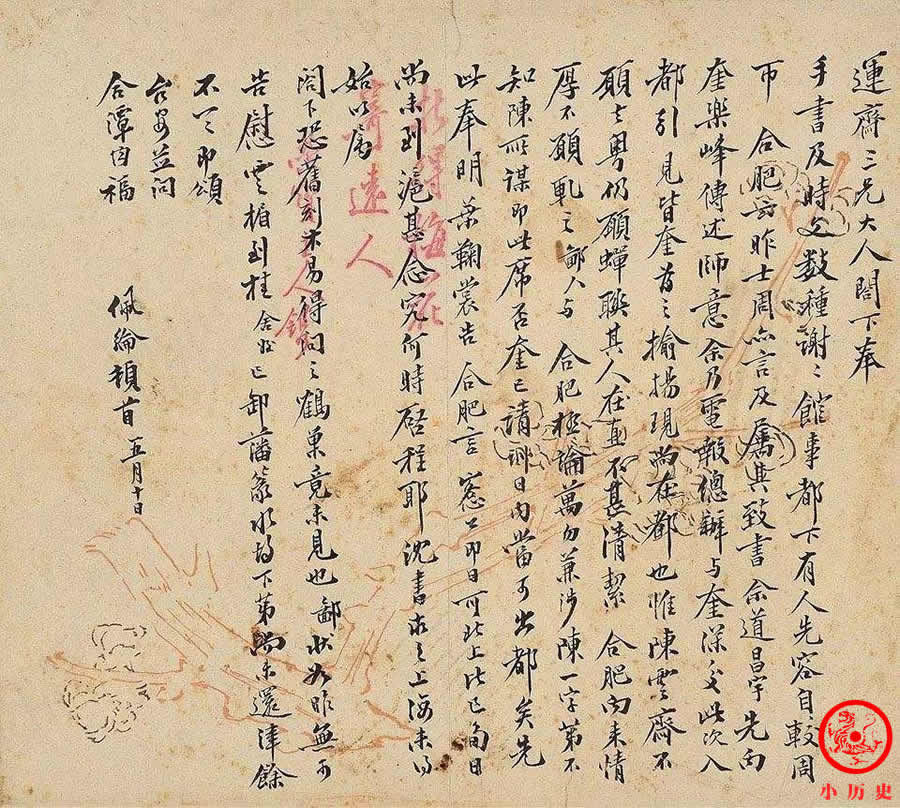 運齋三兄大人閣下奉
手書及時文數種謝〻館事都下有人先容自較周
帀合肥前昨士周亦言及屬其致書余道昌宇先向
奎樂峰傳述師意余乃電報總辦與奎深交此次入
都引見皆奎為之揄揚現尚在都也惟陳雲齋不
願去粵仍願蟬聯其人在直不甚清潔合肥向來情
厚不願軋之鄙人與合肥極論萬勿兼涉陳一字第不
知陳所謀即此席否奎已請訓日內當可出都矣先
此奉明葉鞠裳告合肥言窓公即日可北上比已旬日
尚未到滬甚念究何時啓程耶沈書求之上海未得
始以屬
閣下恐舊刻不易得詢之鶴巢竟未見也鄙狀如昨無可
告慰雲楣到桂舍姪已卸藩篆水故下第尚未還津餘
不一一即頌
台安並問
合潭曼福
佩綸頓首五月十日
折得梅花
寄遠人
小历史